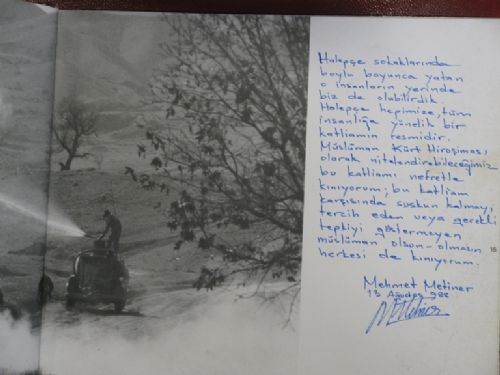 Halepçe sokaklarında
boylu boyunca yatan
o insanların yerinde
biz de olabilirdik.
Halepçe hepimize, tüm
insanlığa yönelik bir
katliamın resmidir.
Müslüman Kürt Hiroşiması
olarak nitelendirebileceğimiz
bu katliamı nefretle
kınıyorum; bu katliam
karşısında suskun kalmayı
tercih eden veya gerekli
tepkiyi göstermeyen
müslüman olsun-olmasın
herkesi de kınıyorum.
15
Mehmet Metiner
13 Ağustos 988